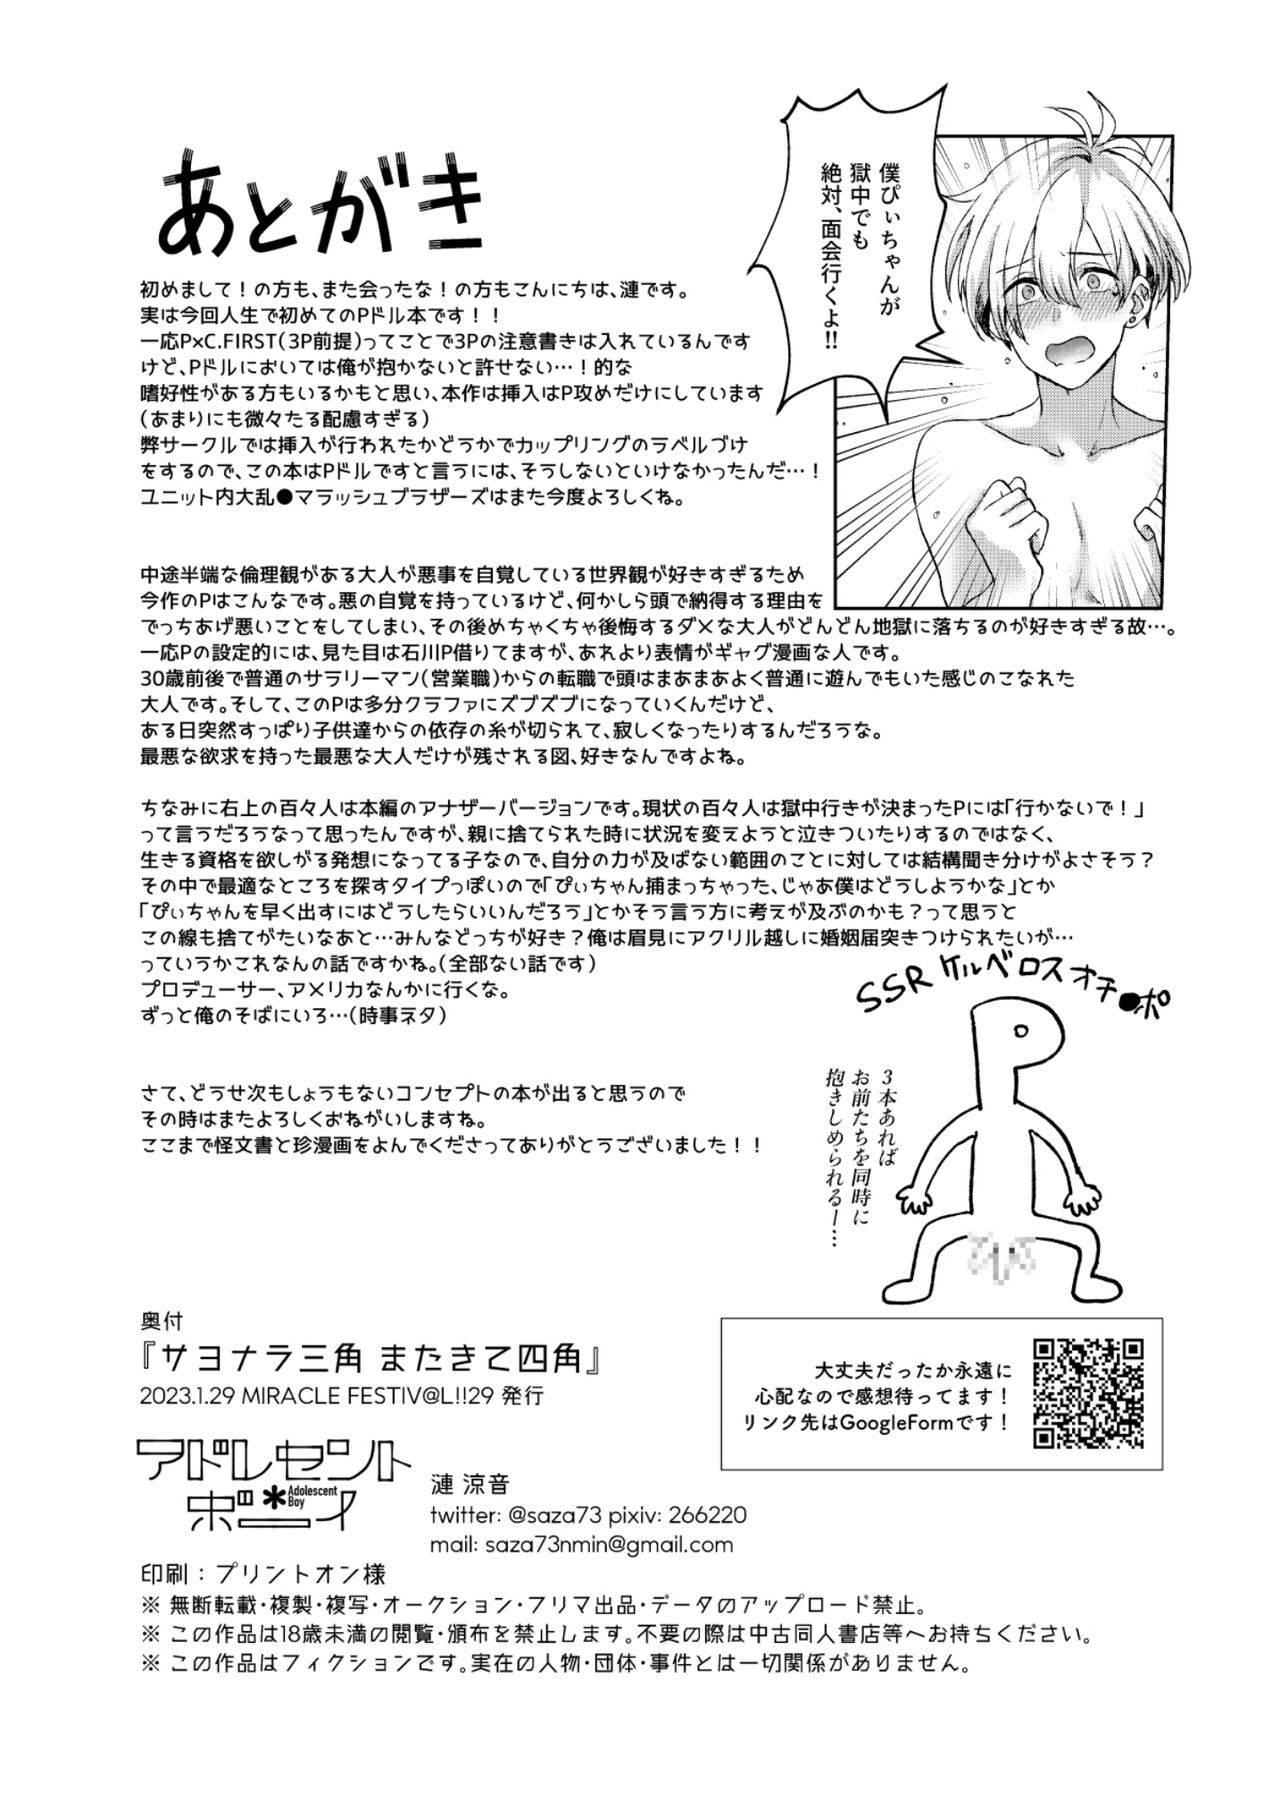 僕ぴぃちゃんが
獄中でも
絶対、面会行くよ!!
あとがき
初めまして！の方も、また会ったな！の方もこんにちは、漣です。
実は今回人生で初めてのPドル本です！！
一応P×C.FIRST(3P前提)ってことで3Pの注意書きは入れているんです
けど、Pドルにおいては俺が抱かないと許せない…！的な
嗜好性がある方もいるかもと思い、本作は挿入はP攻めだけにしています
(あまりにも微々たる配慮すぎる)
弊サークルでは挿入が行われたかどうかでカップリングのラベルづけ
をするので、この本はPドルですと言うには、そうしないといけなかったんだ…！
ユニット内大乱●マラッシュブラザーズはまた今度よろしくね。
中途半端な倫理観がある大人が悪事を自覚している世界観が好きすぎるため
今作のPはこんなです。悪の自覚を持っているけど、何かしら頭で納得する理由を
でっちあげ悪いことをしてしまい、その後めちゃくちゃ後悔するダメな大人がどんどん地獄に落ちるのが好きすぎる故…。
一応Pの設定的には、見た目は石川P借りてますが、あれより表情がギャグ漫画な人です。
30歳前後で普通のサラリーマン(営業職)からの転職で頭はまあまあよく普通に遊んでもいた感じのこなれた
大人です。そして、このPは多分クラファにズブズブになっていくんだけど、
ある日突然すっぱり子供達からの依存の糸が切られて、寂しくなったりするんだろうな。
最悪な欲求を持った最悪な大人だけが残される図、好きなんですよね。
ちなみに右上の百々人は本編のアナザーバージョンです。現状の百々人は獄中行きが決まったPには「行かないで！」
って言うだろうなって思ったんですが、親に捨てられた時に状況を変えようと泣きついたりするのではなく、
生きる資格を欲しがる発想になってる子なので、自分の力が及ばない範囲のことに対しては結構聞き分けがよさそう？
その中で最適なところを探すタイプっぽいので「ぴぃちゃん捕まっちゃった、じゃあ僕はどうしようかな」とか
「ぴぃちゃんを早く出すにはどうしたらいいんだろう」とかそう言う方に考えが及ぶのかも？って思うと
この線も捨てがたいなあと…みんなどっちが好き？俺は眉見にアクリル越しに婚姻届突きつけられたいが…
っていうかこれなんの話ですかね。(全部ない話です)
プロデューサー、アメリカなんかに行くな。
ずっと俺のそばにいろ…(時事ネタ)
さて、どうせ次もしょうもないコンセプトの本が出ると思うので
その時はまたよろしくおねがいしますね。
ここまで怪文書と珍漫画をよんでくださってありがとうございました！！
SSRケルベロスオチ●ポ
3本あれば
お前たちを同時に
抱きしめられるー…
奥付
『サヨナラ三角 またきて四角』
2023.1.29 MIRACLE FESTIV@L!!29 発行
大丈夫だったか永遠に
心配なので感想待ってます！
リンク先はGoogleFormです！
アドレセント
ボーイ
Adolescent
Boy
漣 涼音
twitter: @saza73 pixiv: 266220
mail: saza73nmin@gmail.com
印刷：プリントオン様
※ 無断転載・複製・複写・オークション・フリマ出品・データのアップロード禁止。
※ この作品は18歳未満の閲覧・頒布を禁止します。不要の際は中古同人書店等へお持ちください。
※ この作品はフィクションです。実在の人物・団体・事件とは一切関係がありません。